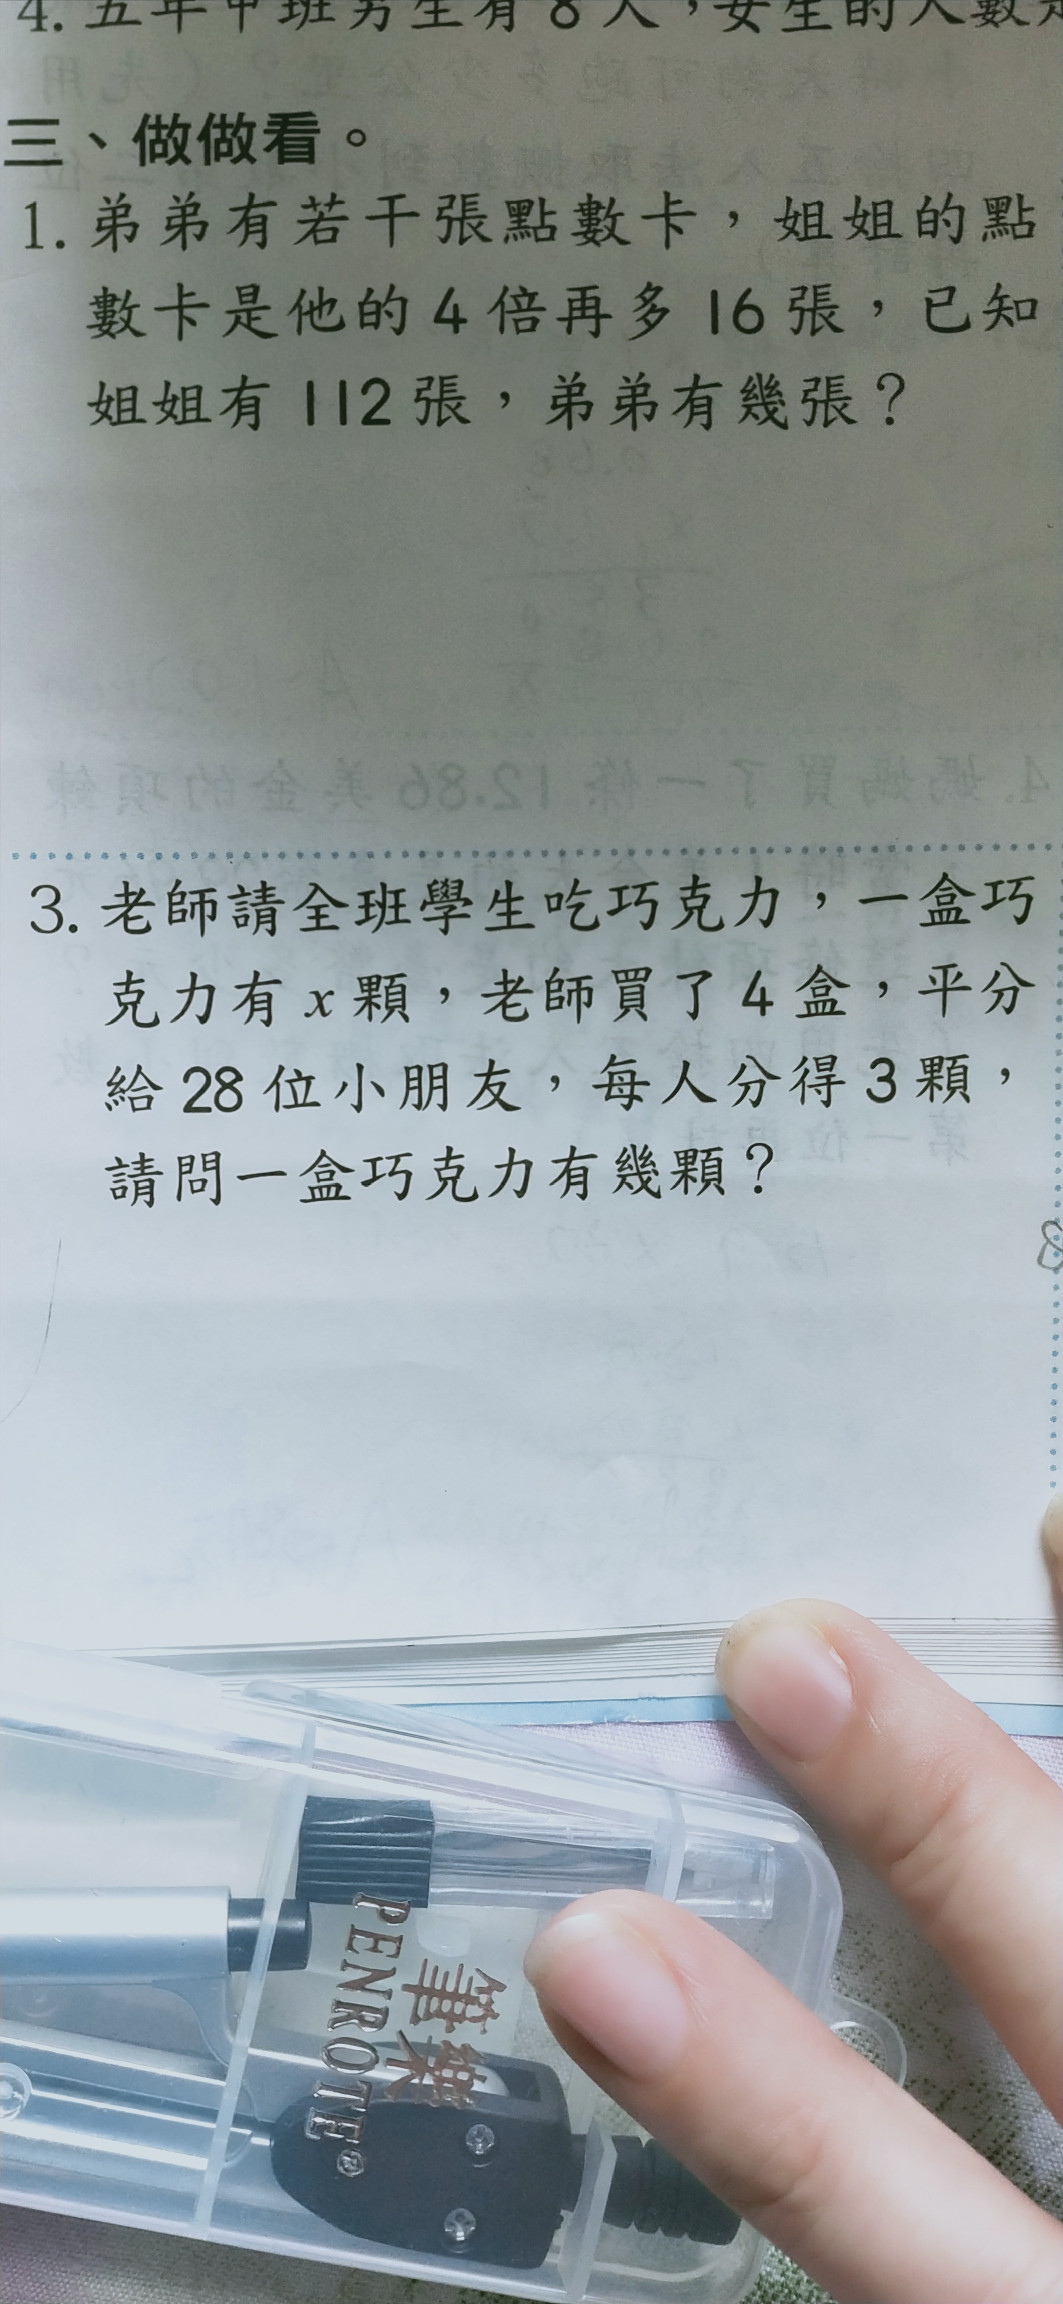 4. 五年甲班男生有 8 人，女生的人數是
三、做做看。
1. 弟弟有若干張點數卡，姐姐的點
數卡是他的 4 倍再多 16 張，已知
姐姐有 112 張，弟弟有幾張？
3. 老師請全班學生吃巧克力，一盒巧
克力有 x 顆，老師買了 4 盒，平分
給 28 位小朋友，每人分得 3 顆，
請問一盒巧克力有幾顆？
筆樂
PENROTE®